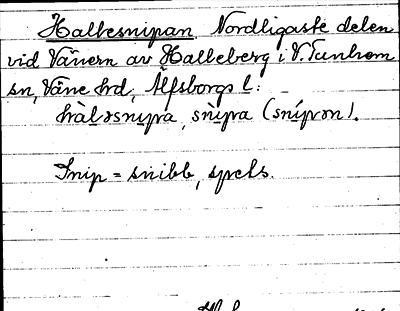 Hallesnipan Nordligaste delen
vid Vänern av Halleberg i V. Tunhem
sn, Väne hrd, Älfsborgs l:
hàləsnıpra, snìpra (snípən).
Snip = snibb, spets.